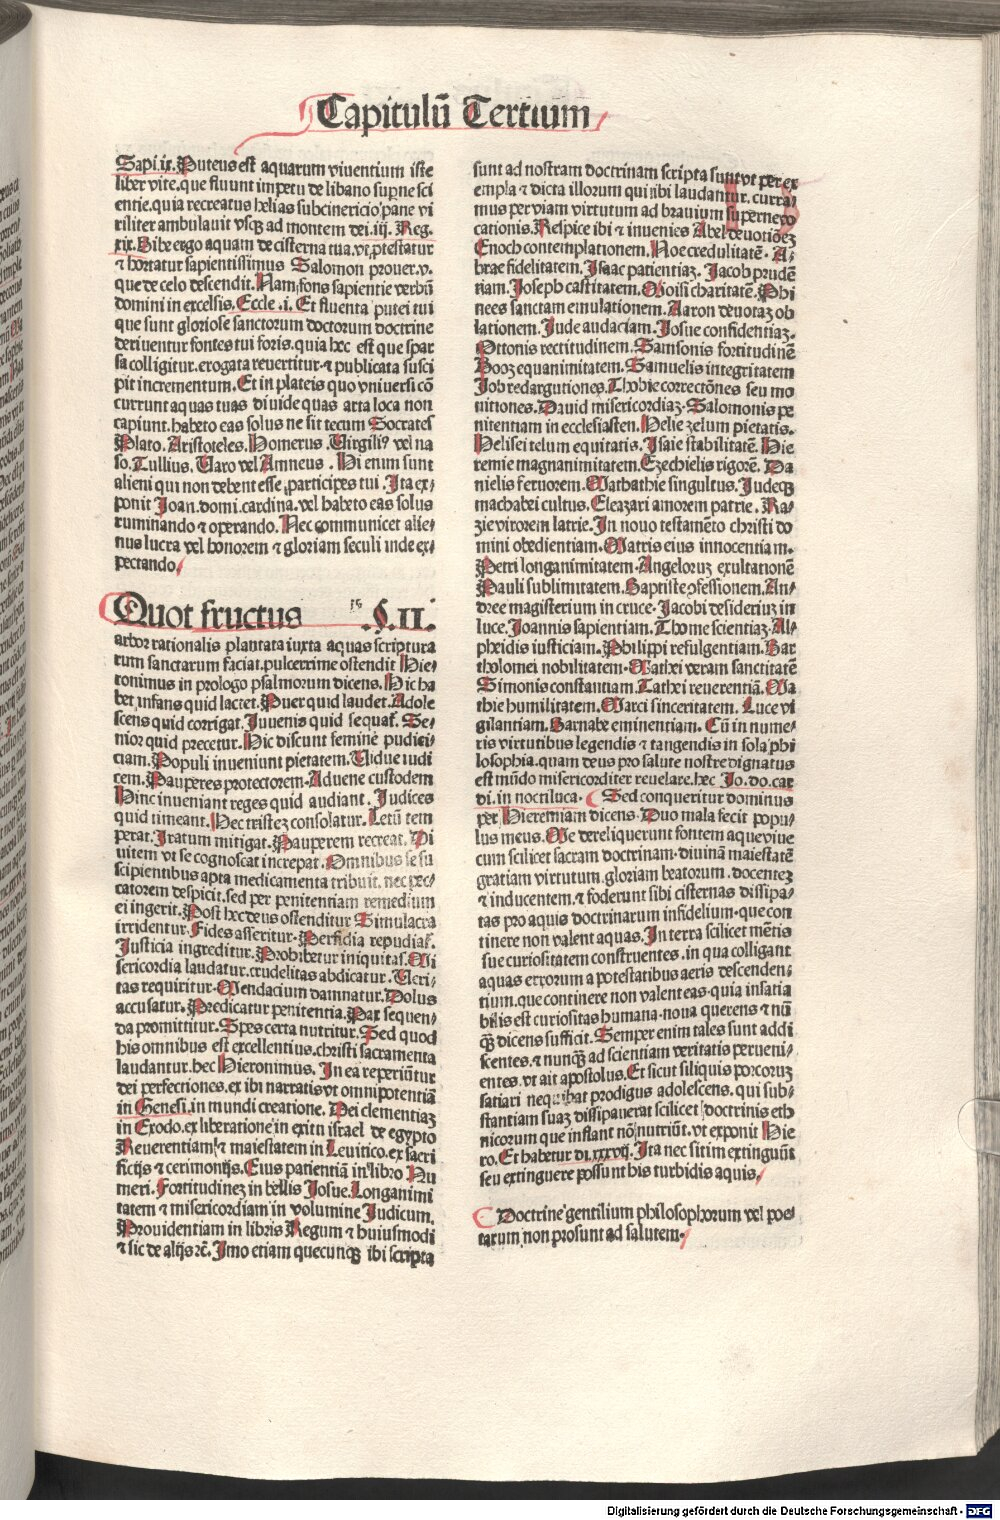 Capitulū Tertium
Sapi.ix. Puteus est aquarum viventium iste
liber vite. que fluunt impetu de libano supne sci
entie. quia recreatus helias subcinericio pane vi
riliter ambulauit vsq3 ad montem dei. iij. Reg.
xix. Bibe ergo aquam de cisterna tua. vt ptestatur
⁊ hortatur sapientissimus Salomon prouer. v.
que de celo descendit. Nam fons sapientie verbū
domini in excelsis. Eccle .i. Et fluenta putei tui
que sunt gloriose sanctorum doctorum doctrine
deriuentur fontes tui foris. quia hec est que spar
sa colligitur. erogata reuertitur. ⁊ publicata susci
pit incrementum. Et in plateis quo vniuersi cō
currunt aquas tuas diuide quas arta loca non
capiunt. habeto eas solus ne sit tecum Socrates
Plato. Aristoteles. Homerus. Virgiliꝰ vel na
so. Tullius. Varo vel Amneus . Hi enim sunt
alieni qui non debent esse participes tui. Ita ex-
ponit Joan. domi. cardina. vel habeto eas solus
ruminando ⁊ operando. Nec communicet alie-
nus lucra vel honorem ⁊ gloriam seculi inde ex-
pectando
Quot fructus .§.II.
arbor rationalis plantata iuxta aquas scriptura
rum sanctarum faciat. pulcerrime ostendit Hie-
ronimus in prologo psalmorum dicens. Hic ha
bet infans quid lactet. Puer quid laudet. Adole
scens quid corrigat. Juuenis quid sequat. Se-
nior quid precetur. Hic discunt femine pudici-
ciam. Populi inueniunt pietatem. Vidue iudi
cem. Pauperes protectorem. Aduene custodem
Hinc inueniant reges quid audiant. Judices
quid timeant. Hec tristez consolatur. Letū tem
perat. Iratum mitigat. Pauperem recreat. Di
uitem vt se cognoscat increpat. Omnibus se su
scipientibus apta medicamenta tribuit. nec pec-
catorem despicit. sed per penitentiam remedium
ei ingerit. Post hec deus ostenditur Simulacra
irridentur. Fides asseritur. Perfidia repudiat.
Justicia ingreditur. Prohibetur iniquitas. Mi
sericordia laudatur. crudelitas abdicatur. Veri-
tas requiritur. Mendacium damnatur. Dolus
accusatur. Predicatur penitentia. Pax sequen-
da promittitur. Spes certa nutritur. Sed quod
his omnibus est excellentius. christi sacramenta
laudantur. hec Hieronimus. In ea reperiūtur
dei perfectiones. ex ibi narratis vt omnipotentiā
in Genesi. in mundi creatione. Dei clementiaz
in Exodo. ex liberatione in exitu israel de egypto
Reuerentiam ⁊ maiestatem in Leuitico. ex sacri
ficijs ⁊ cerimonijs. Eius patientiā in libro Nu
meri. Fortitudinez in bellis Josue. Longanimi
tatem ⁊ misericordiam in volumine Judicum.
Prouidentiam in libris Regum ⁊ huiusmodi
⁊ sic de alijs ⁊c̄. Imo etiam quecunq3 ibi scripta
sunt ad nostram doctrinam scripta sunt vt per ex
empla ⁊ dicta illorum qui ibi laudantur. curra-
mus per viam virtutum ad brauium superne vo
cationis. Respice ibi ⁊ inuenies Abel deuotiōez
Enoch contemplationem. Noe credulitatē. A-
brae fidelitatem. Isaac patientiaz. Jacob prudē
tiam. Joseph castitatem. Moisi charitatē. Phi
nees sanctam emulationem. Aaron deuotaz ob
lationem. Jude audaciam. Josue confidentiaz.
Ottonis rectitudinem. Samsonis fortitudinē
Booz equanimitatem. Samuelis integritatem
Job redargutiones. Thobie correctōnes seu mo
nitiones. Dauid misericordiaz. Salomonis pe
nitentiam in ecclesiasten. Helie zelum pietatis.
Helisei telum equitatis. Isaie stabilitatē. Hie
remie magnanimitatem. Ezechielis rigorē. Da
nielis feruorem. Mathathie singultus. Judeq3
machabei cultus. Eleazari amorem patrie. Ra-
zie virorem latrie. In nouo testamēto christi do
mini obedientiam. Matris eius innocentiam.
Petri longanimitatem. Angeloruz exultationē
Pauli sublimitatem. Baptiste ꝯfessionem. An-
dree magisterium in cruce. Jacobi desideriuz in
luce. Joannis sapientiam. Thome scientiaz. Al-
pheidis iusticiam. Philippi refulgentiam. Bar
tholomei nobilitatem. Mathei veram sanctitatē
Simonis constantiam. Tathei reuerentiā. Ma
thie humilitatem. Marci sinceritatem. Luce vi
gilantiam. Barnabe eminentiam. Cū in nume-
ris virtutibus legendis ⁊ tangendis in sola phi
losophia. quam deus pro salute nostre dignatus
est mūdo misericorditer reuelare. hec Jo. do. car
di. in noctiluca. Sed conqueritur dominus
per Hieremiam dicens. Duo mala fecit popu-
lus meus. Me dereliquerunt fontem aque viue
cum scilicet sacram doctrinam. diuinā maiestatē
gratiam virtutum. gloriam beatorum. docentez
⁊ inducentem. ⁊ foderunt sibi cisternas dissipa-
tas pro aquis doctrinarum infidelium. que con
tinere non valent aquas. In terra scilicet mētis
sue curiositatem construentes. in qua colligant
aquas errorum a potestatibus aeris descenden-
tium. que continere non valent eas. quia insatia
bilis est curiositas humana. noua querens ⁊ nū
q̄3 dicens sufficit. Semper enim tales sunt addi
scentes. ⁊ nunq̄3 ad scientiam veritatis perueni-
entes. vt ait apostolus. Et sicut siliquis porcoruz
satiari nequibat prodigus adolescens. qui sub-
stantiam suaz dissipauerat scilicet doctrinis eth
nicorum que inflant nō nutriūt. vt exponit Hie
ro. Et habetur di. xxxvij. Ita nec sitim extinguūt
seu extinguere possunt his turbidis aquis.
Doctrine gentilium philosophorum vel poe-
tarum non prosunt ad salutem.
Digitalisierung gefördert durch die Deutsche Forschungsgemeinschaft - DFG